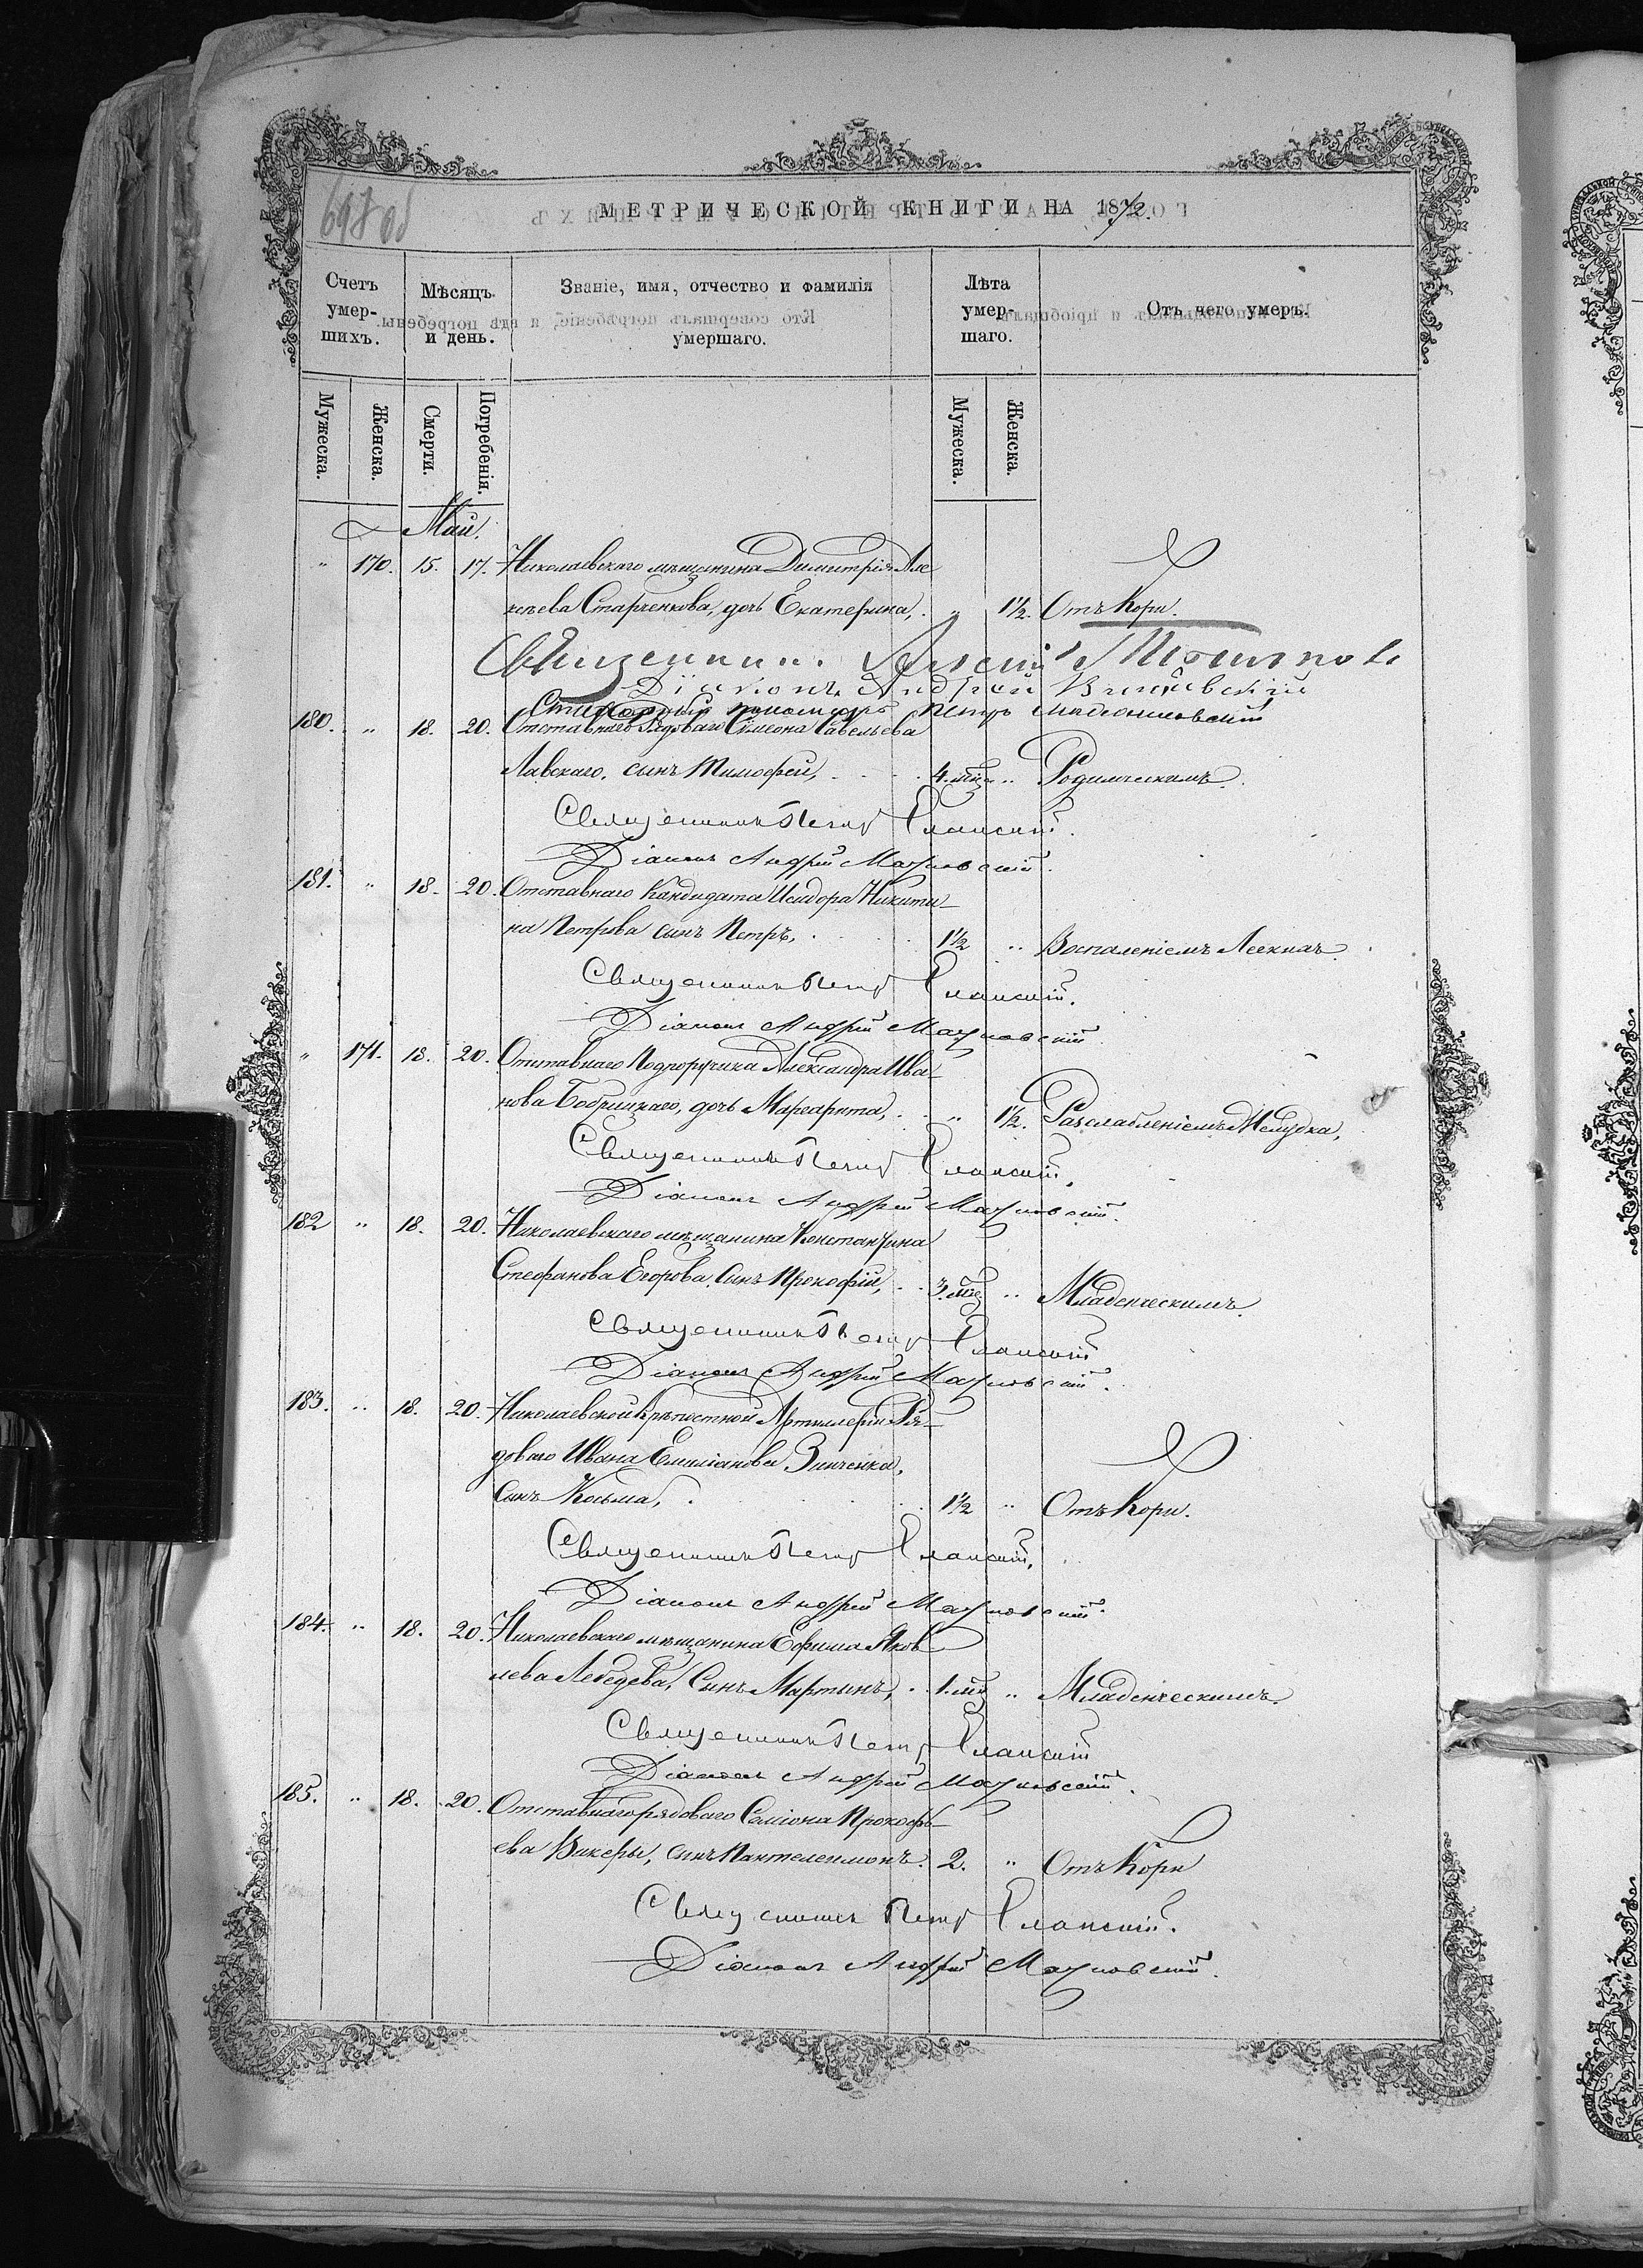 697 об
МЕТРИЧЕСКОЙ КНИГИ НА 1872
Счетъ умер- шихъ.
Мѣсяцъ и день.
Званіе, имя, отчество и фамилія умершаго.
Лѣта умер- шаго.
Отъ чего умеръ.
Мужеска. Женска. Смерти. Погребенія. Мужеска. Женска.
Май.
" 170. 15. 17. Николаевскаго мѣщанина Димитрія Але
ксѣева Старченкова, дочь Екатерина, " 1½. Отъ Кори.
Священникъ
Діаконъ Андрей
Петръ
180. " 18. 20. Отставнаго Рядоваго Симеона Савельева
Лавскаго, сынъ Тимофей, 4. мц " Родимческимъ.
Священникъ Петр Еланскій.
Діаконъ Андрей
181. " 18. 20. Отставнаго Кандидата Исидора Никити-
на Петрова сынъ Петръ, 1½ " Воспаленіемъ Легкихъ.
Священникъ Петр Еланскій.
Діаконъ Андрей
" 171. 18. 20. Отставнаго Подпоручика Александра Ива-
нова Бобрицкаго, дочь Маргарита, " 1½. Разслабленіемъ Желудка,
Священникъ Петр Еланскій.
Діаконъ Андрей
182 " 18. 20. Николаевскаго мѣщанина Константина
Стефанова Егорова, Сынъ Прокофій, 3. мц " Младенческимъ.
Священникъ Петр Еланскій
Діаконъ Андрей
183. " 18. 20. Николаевской Крѣпостной Артиллеріи Ря-
доваго Ивана Емиліанова Зинченка,
Сынъ Косьма, 1½ " Отъ Кори.
Священникъ Петр Еланскій.
Діаконъ Андрей
184. " 18. 20. Николаевскаго мѣщанина Ефима Яков
лева Лебедева, Сынъ Мартынъ, 1. мц " Младенческимъ.
Священникъ Петр Еланскій
Діаконъ Андрей
185. " 18. 20. Отставнаго рядоваго Семіона Прокофь-
ева Викеры, сынъ Пантелеимонъ. 2. " Отъ Кори
Священникъ Петр Еланскій.
Діаконъ Андрей